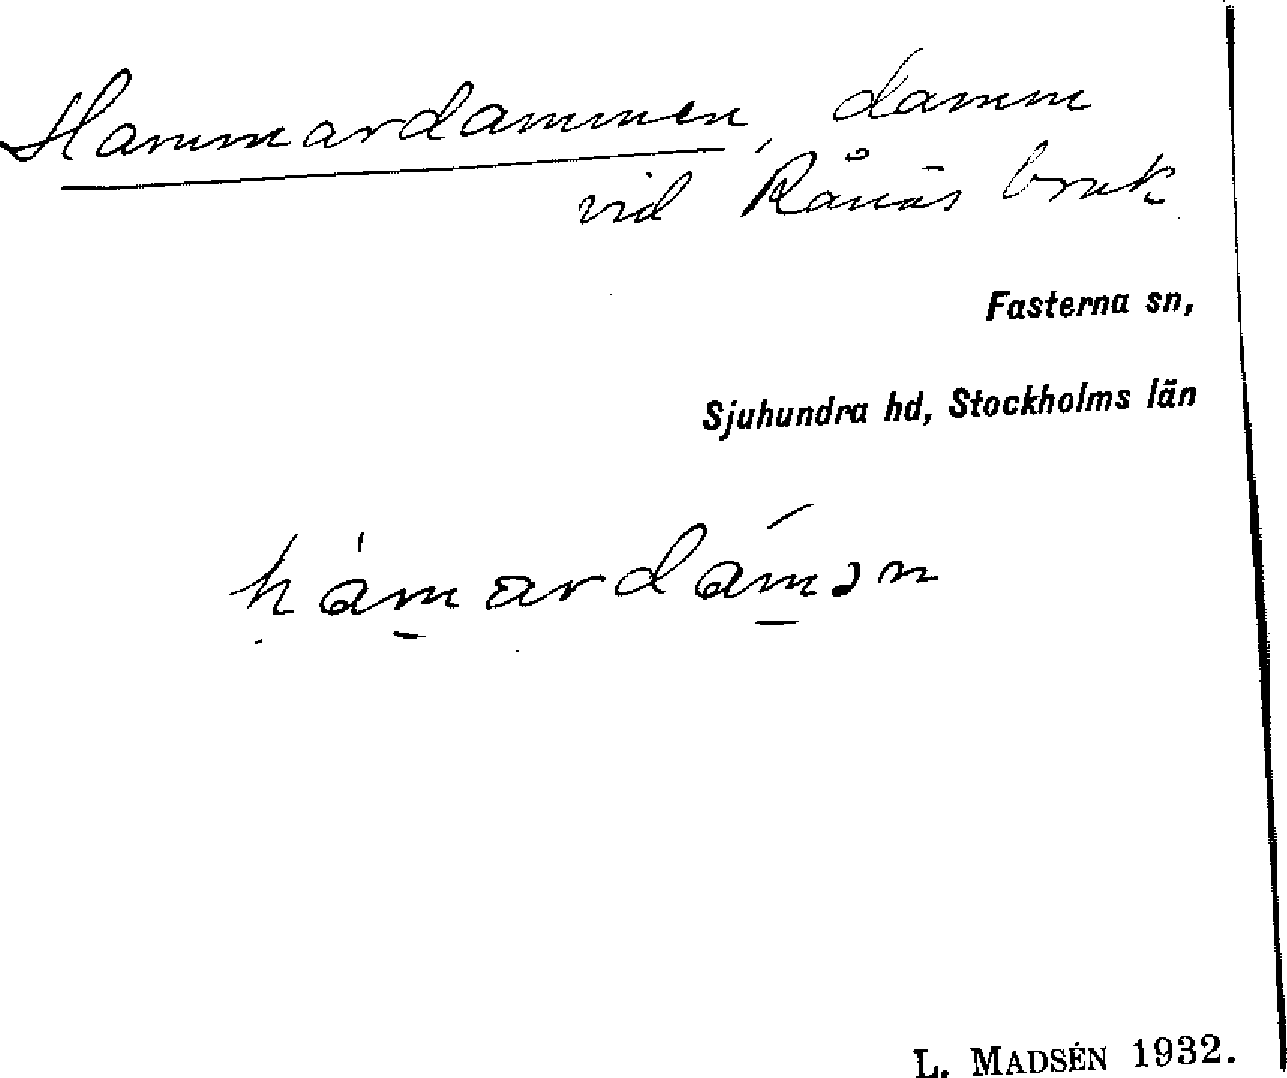 Hammardammen, damm
vid Rånäs bruk
Fasterna sn,
Sjuhundra hd, Stockholms län
hámardámən
L. MADSÉN 1932.